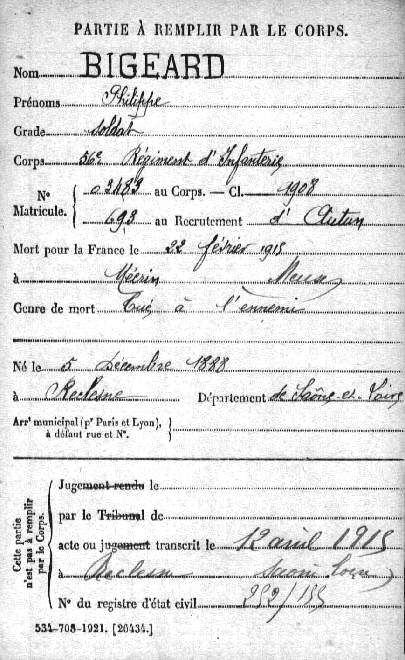 PARTIE À REMPLIR PAR LE CORPS.
Nom BIGEARD
Prénoms Philippe
Grade soldat
Corps 56e Régiment d'Infanterie
N° Matricule. { 03483 au Corps. — Cl. 1908
693 au Recrutement d'Autun
Mort pour la France le 22 février 1915
à Mécrin Meuse
Genre de mort Tué à l'ennemi
Né le 5 Décembre 1888
à Reclesne Département de Saône-et-Loire
Arrt municipal (pr Paris et Lyon), à défaut rue et N°.
Cette partie n'est pas à remplir par le Corps.
Jugement rendu le
par le Tribunal de
acte ou jugement transcrit le 12 avril 1915
à Reclesne Saône Loire
N° du registre d'état civil
534-708-1921. [26434.]